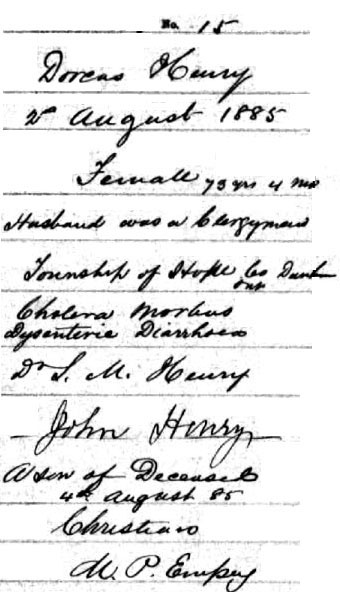 No. 15
Dorcas Henry
2nd August 1885
Female 73 yrs 4 mos
Husband was a Clergyman
Township of Hope Co Durham
Cholera Morbus
Dysenterie Diarrhoea
Dr S. M. Henry
John Henry
A son of Deceased
4th August 85
Christian
M. P. Empey